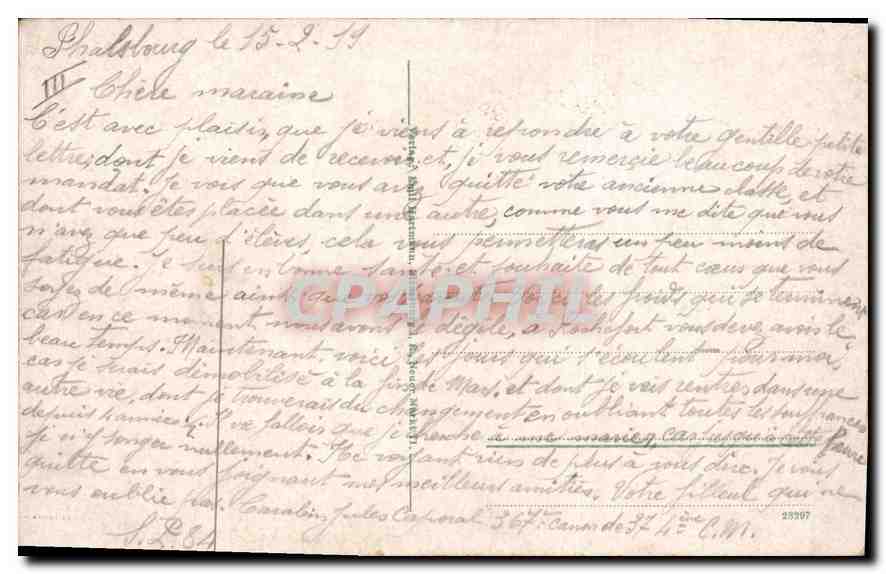 Phalsbourg le 15-2-19
III Chère maraine
C'est avec plaisir, que je viens à répondre à votre gentille petite
lettre, dont je viens de recevoir, et, je vous remerçie beaucoup de votre
mandat. Je vois que vous avez quitté votre ancienne classe, et
dont vous êtes placée dans une autre, comme vous me dite que vous
n'avez que peu d'élèves, cela vous permetteras un peu moins de
fatigue. Je suis en bonne santé et souhaite de tout cœur que vous
soyez de même ainsi que vos parents. Voici les froids qui se terminent
car en ce moment nous avons le dégele, a Rochefort vous devez avoir le
beau temps. Maintenant, voici les jours qui s'écoulent pour moi,
car je serais démobilisé à la fin de Mars, et dont je vais rentrer dans une
autre vie, dont je trouverais du changement en oubliant toutes les souffrances
depuis 4 années; il va falloir que je cherche à me marier, car jusqu'à cette heure
je n'y songer nullement. Ne voyant rien de plus à vous dire. Je vous
quitte en vous joignant mes meilleurs amitiés. Votre filleul qui ne
vous oublie pas. Carabin Jules Caporal 367ème canon de 37 4ème C.M.
S.P. 84
28397
CPAPHIL